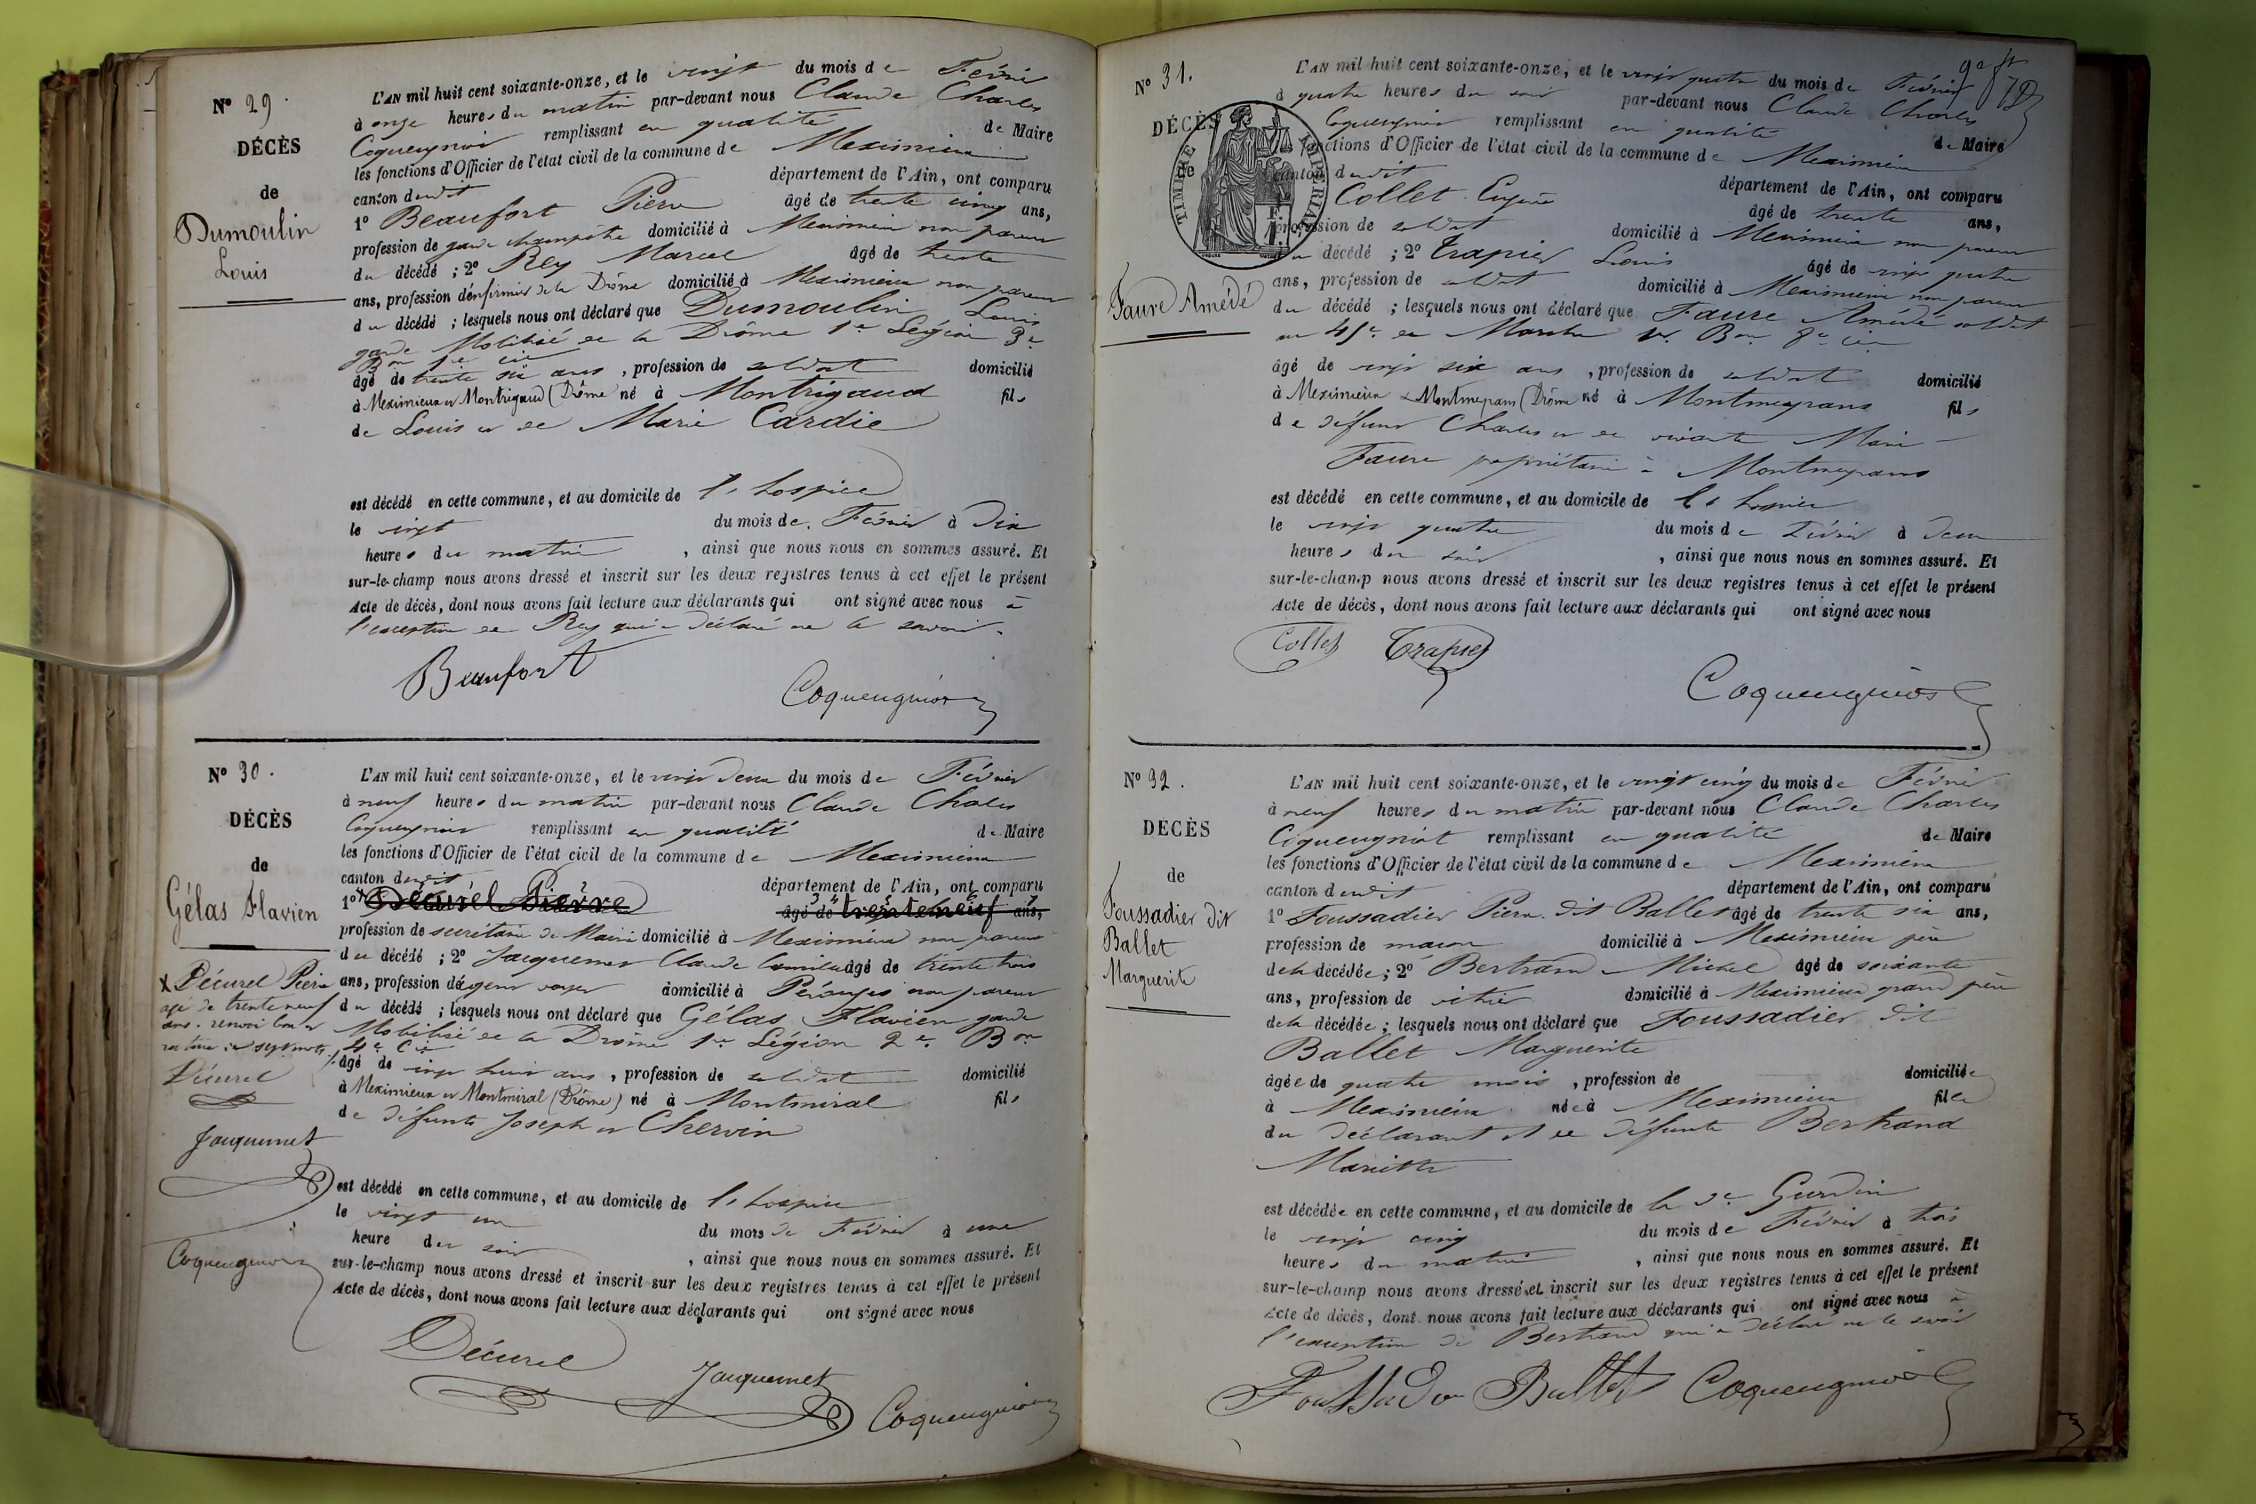 N° 29.
DÉCÈS
de
Dumoulin
Louis
L'AN mil huit cent soixante-onze, et le vingt du mois de Février
à onze heures du matin par-devant nous Claude Charles
Coqueugniot remplissant en qualité de Maire
les fonctions d'Officier de l'état civil de la commune de Meximieux
canton dudit département de l'Ain, ont comparu
1° Beaufort Pierre âgé de trente cinq ans,
profession de garde champêtre domicilié à Meximieux non parent
du décédé ; 2° Rey Marcel âgé de trente
ans, profession d'infirmier de la Drôme domicilié à Meximieux non parent
du décédé ; lesquels nous ont déclaré que Dumoulin Louis
garde Mobilisé de la Drôme 1re Légion 3e
Bon 1re cie
âgé de trente six ans, profession de soldat domicilié
à Meximieux et Montrigaud (Drôme né à Montrigaud fils
de Louis et de Marie Cardie
est décédé en cette commune, et au domicile de l'hospice
le vingt du mois de Février à dix
heures du matin, ainsi que nous nous en sommes assuré. Et
sur-le-champ nous avons dressé et inscrit sur les deux registres tenus à cet effet le présent
Acte de décès, dont nous avons fait lecture aux déclarants qui ont signé avec nous à
l'exception de Rey qui a déclaré ne le savoir.
Beaufort
Coqueugniot
N° 30.
DÉCÈS
de
Gélas Flavien
X Décurel Pierre
âgé de trente neuf
ans. renvoi bon et
rature de sept mots
Décurel
Jacquemet
Coqueugniot
L'AN mil huit cent soixante-onze, et le vingt deux du mois de Février
à neuf heures du matin par-devant nous Claude Charles
Coqueugniot remplissant en qualité de Maire
les fonctions d'Officier de l'état civil de la commune de Meximieux
canton dudit département de l'Ain, ont comparu
1° X Décurel Pierre âgé de trente neuf ans,
profession de secrétaire de Mairie domicilié à Meximieux non parent
du décédé ; 2° Jacquemet Claude Camille âgé de trente trois
ans, profession d'agent voyer domicilié à Pérouges non parent
du décédé ; lesquels nous ont déclaré que Gélas Flavien garde
Mobilisé de la Drôme 1re Légion 2e Bon
4e Cie
âgé de vingt huit ans, profession de soldat domicilié
à Meximieux et Montmiral (Drôme) né à Montmiral fils
de défunts Joseph et Chervin
est décédé en cette commune, et au domicile de l'hospice
le vingt un du mois de Février à une
heure du soir, ainsi que nous nous en sommes assuré. Et
sur-le-champ nous avons dressé et inscrit sur les deux registres tenus à cet effet le présent
Acte de décès, dont nous avons fait lecture aux déclarants qui ont signé avec nous
Décurel
Jacquemet
Coqueugniot
N° 31.
DÉCÈS
de
Faure Amédé
TIMBRE IMPERIAL
L'AN mil huit cent soixante-onze, et le vingt quatre du mois de Février
à quatre heures du soir par-devant nous Claude Charles
Coqueugniot remplissant en qualité de Maire
les fonctions d'Officier de l'état civil de la commune de Meximieux
canton dudit département de l'Ain, ont comparu
Collet Eugène âgé de trente ans,
profession de soldat domicilié à Meximieux non parent
du décédé ; 2° Trapier Louis âgé de vingt quatre
ans, profession de soldat domicilié à Meximieux non parent
du décédé ; lesquels nous ont déclaré que Faure Amédé soldat
au 45e de Marche Bon 8e cie
âgé de vingt six ans, profession de soldat domicilié
à Meximieux & Montmeyrans (Drôme né à Montmeyrans fils
de défunt Charles et de vivante Marie
Faure propriétaire à Montmeyrans
est décédé en cette commune, et au domicile de l'hospice
le vingt quatre du mois de Février à deux
heures du soir, ainsi que nous nous en sommes assuré. Et
sur-le-champ nous avons dressé et inscrit sur les deux registres tenus à cet effet le présent
Acte de décès, dont nous avons fait lecture aux déclarants qui ont signé avec nous
Collet Trapier
Coqueugniot
N° 32.
DECÈS
de
Foussadier dit
Ballet
Marguerite
L'AN mil huit cent soixante-onze, et le vingt cinq du mois de Février
à neuf heures du matin par-devant nous Claude Charles
Coqueugniot remplissant en qualité de Maire
les fonctions d'Officier de l'état civil de la commune de Meximieux
canton dudit département de l'Ain, ont comparu
1° Foussadier Pierre dit Ballet âgé de trente six ans,
profession de maçon domicilié à Meximieux père
de la décédée ; 2° Bertrand Michel âgé de soixante
ans, profession de vitrier domicilié à Meximieux grand père
de la décédée ; lesquels nous ont déclaré que Foussadier dit
Ballet Marguerite
âgée de quatre mois, profession de domiciliée
à Meximieux née à Meximieux fille
du déclarant et de défunte Bertrand
Mariette
est décédée en cette commune, et au domicile de la de Gurdin
le vingt cinq du mois de Février à trois
heures du matin, ainsi que nous nous en sommes assuré. Et
sur-le-champ nous avons dressé et inscrit sur les deux registres tenus à cet effet le présent
Acte de décès, dont nous avons fait lecture aux déclarants qui ont signé avec nous à
l'exception de Bertrand qui a déclaré ne le savoir
Foussadier Ballet Coqueugniot